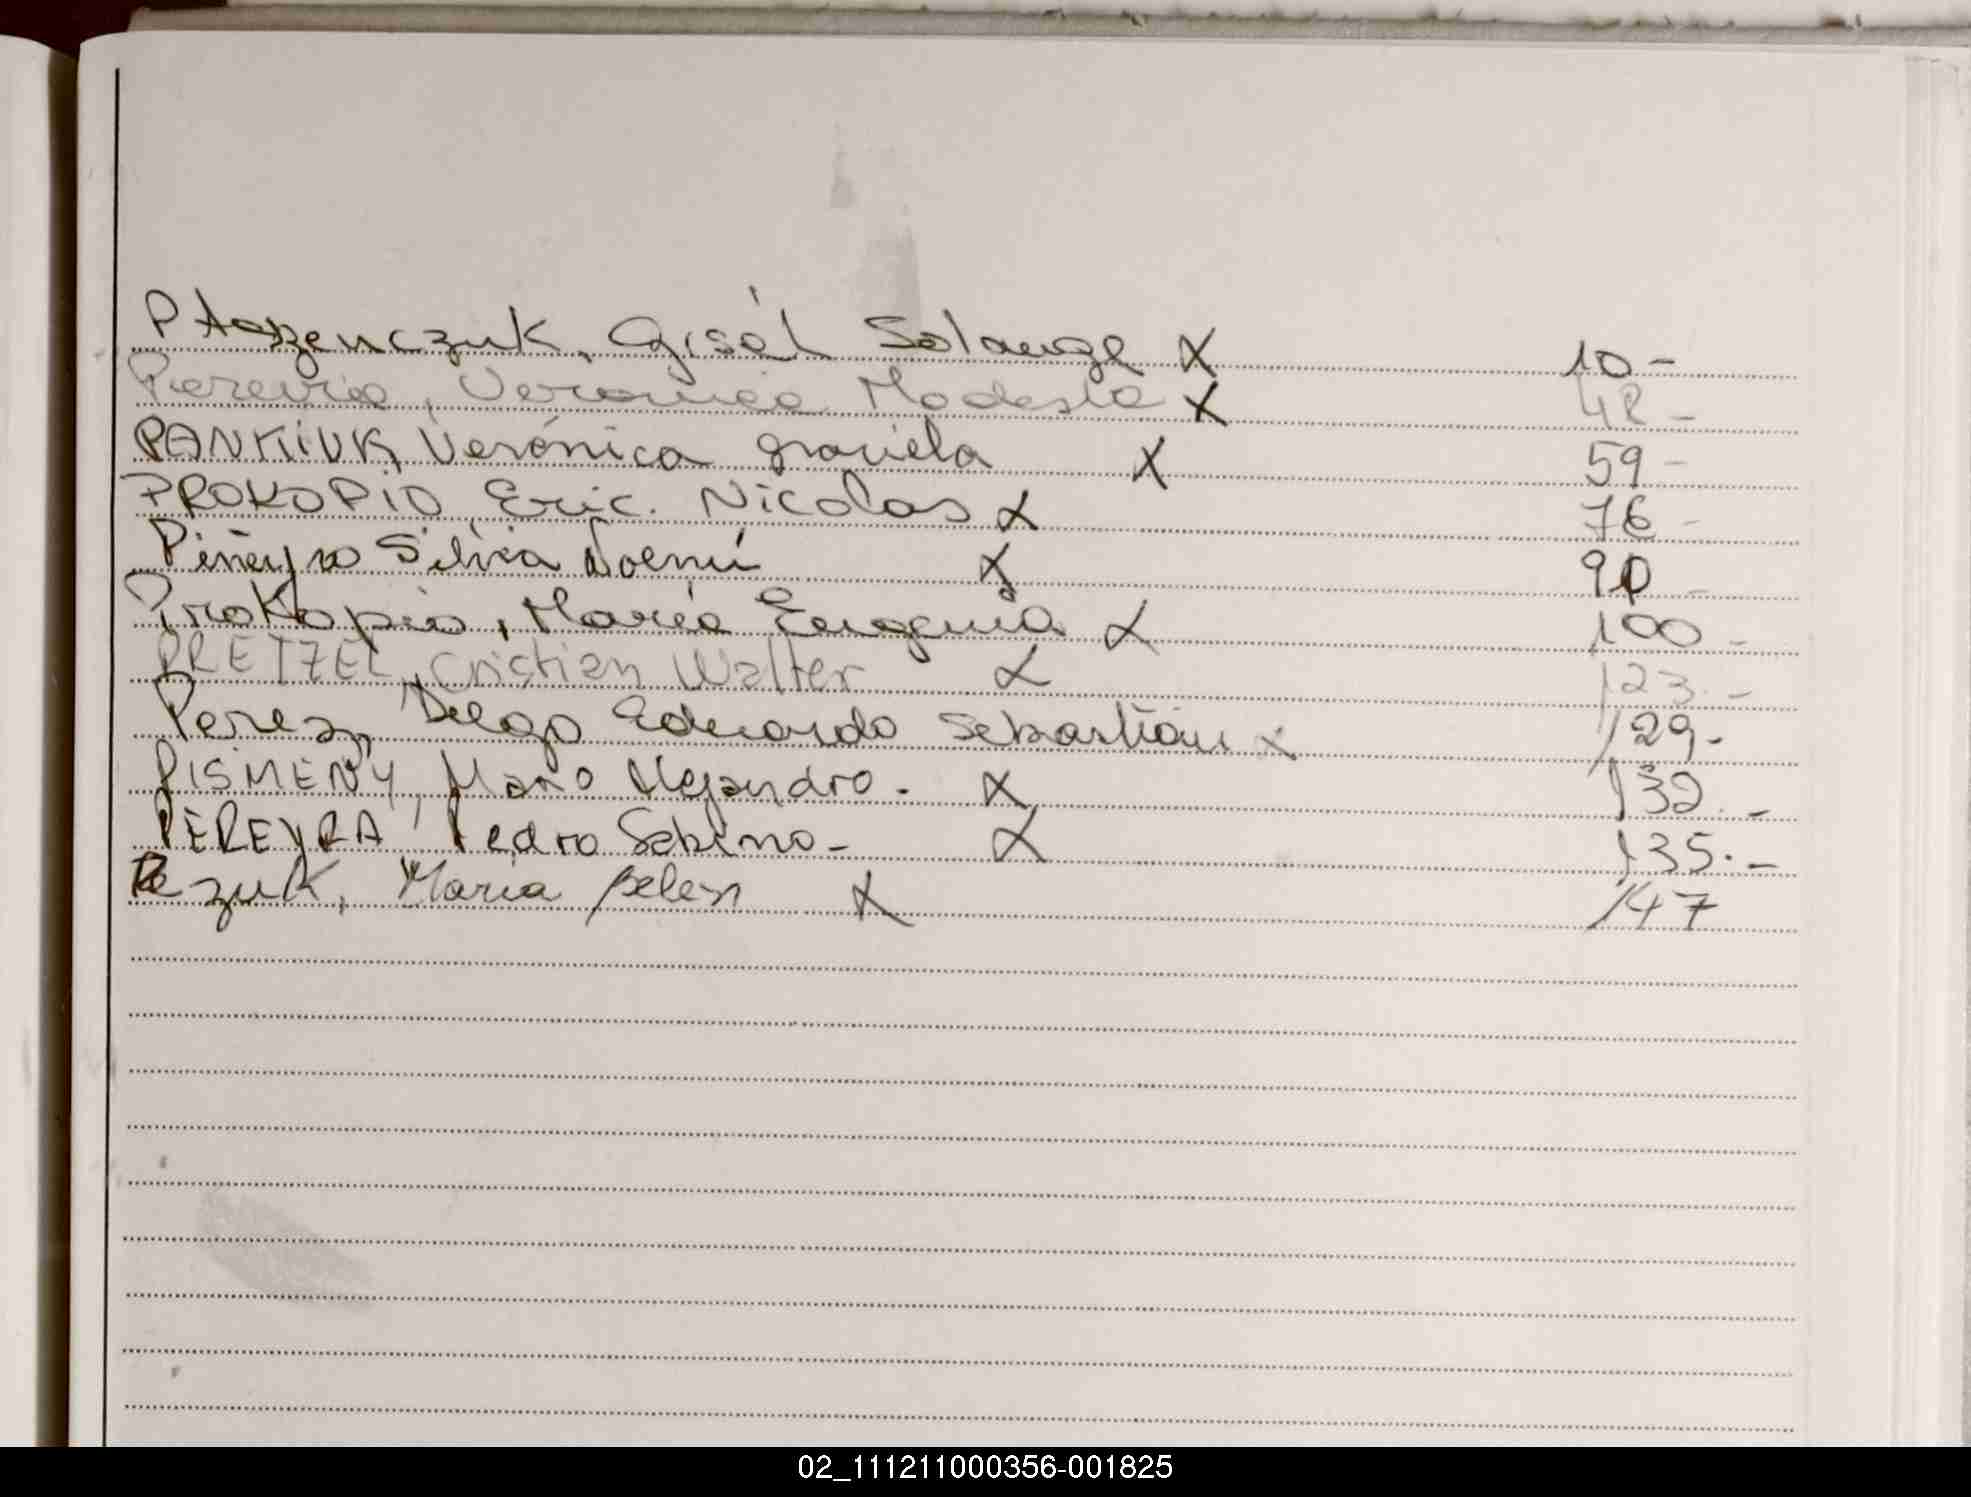 Ptaszenczuk, Gisél Solange X 10-
Pereyra, Veronica Modesta X 48-
PANKIUK, Verónica graciela X 59-
PROKOPIO Eric. Nicolas X 76-
Piñeyro Silvia Noemí X 90-
Prokopio, María Eugenia X 100-
PRETZEL, Cristian Walter X 123.-
Perez, Diego Eduardo Sebastián X 129.-
PISMENY, Mario Alejandro. X 132.-
PEREYRA Pedro Sabino- X 135.-
Pezuk, Maria Belen X 147
02_111211000356-001825